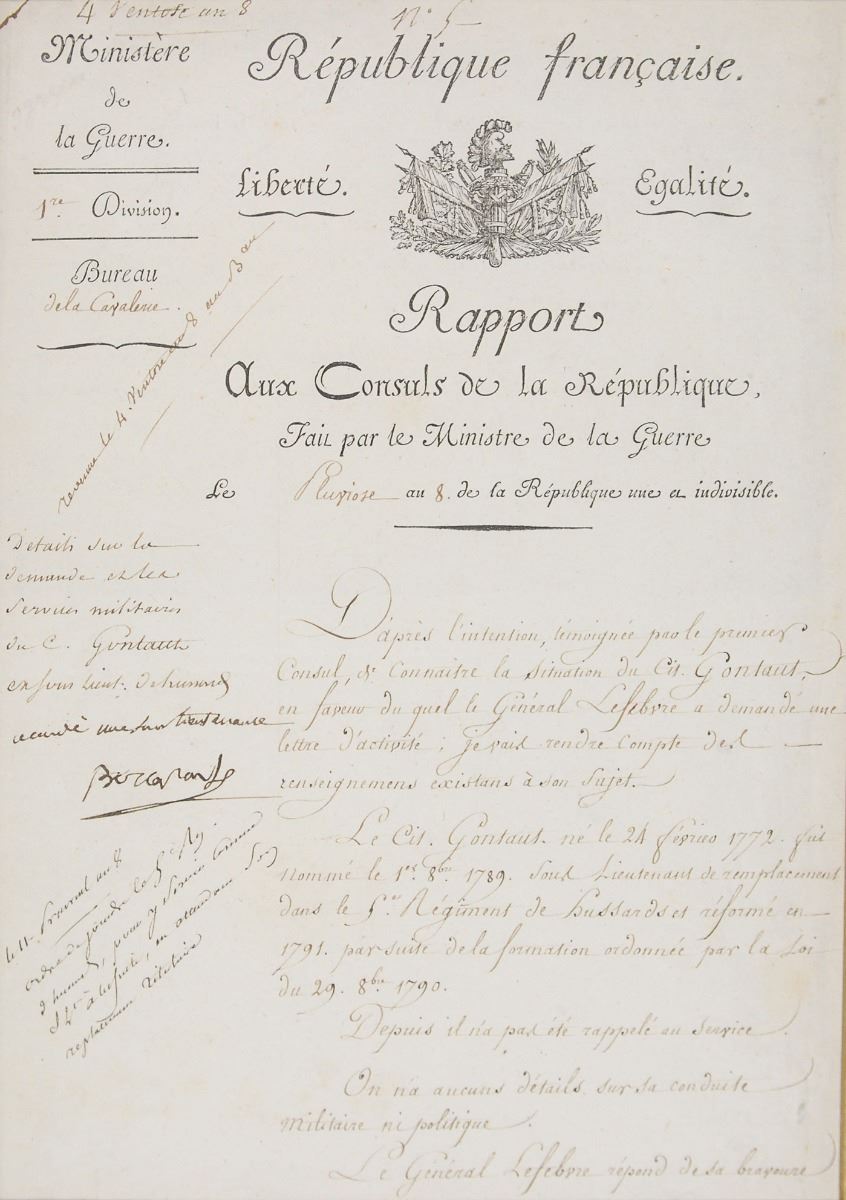 4 Ventose an 8
N.° 5
Ministère
de
la Guerre.
1.re Division.
Bureau
de la Cavalerie.
République française.
Liberté. Egalité.
Rapport
Aux Consuls de la République,
Fait par le Ministre de la Guerre
Le Pluviose an 8. de la République une et indivisible.
revenue le 4. Ventose an 8 au Bau
Details sur la
demande et les
services militaires
du C. Gontaut
ex sous Lieut. d'hussards
accordé une sous lieutenance
D'après l'intention, témoignée par le premier
Consul, de connaitre la situation du Cit. Gontaut,
en faveur du quel le Général Lefebvre a demandé une
lettre d'activité; je vais rendre compte des
renseignemens existans à son sujet.
Le Cit. Gontaut. né le 24 février 1772. fut
nommé le 1er 8bre 1789. Sous Lieutenant de remplacement
dans le 5.me Régiment de hussards et réformé en
1791. par suite de la formation ordonnée par la Loi
du 29. 8bre 1790.
Depuis il n'a pas été rappelé au service.
On n'a aucuns détails sur sa conduite
militaire ni politique.
Le Général Lefebvre répond de sa bravoure
le 11 Prairial an 8
ordre de joindre le 5e Rg
d'hussards, pour y servir comme
S Lt à la suite, en attendant son
replacement titulaire